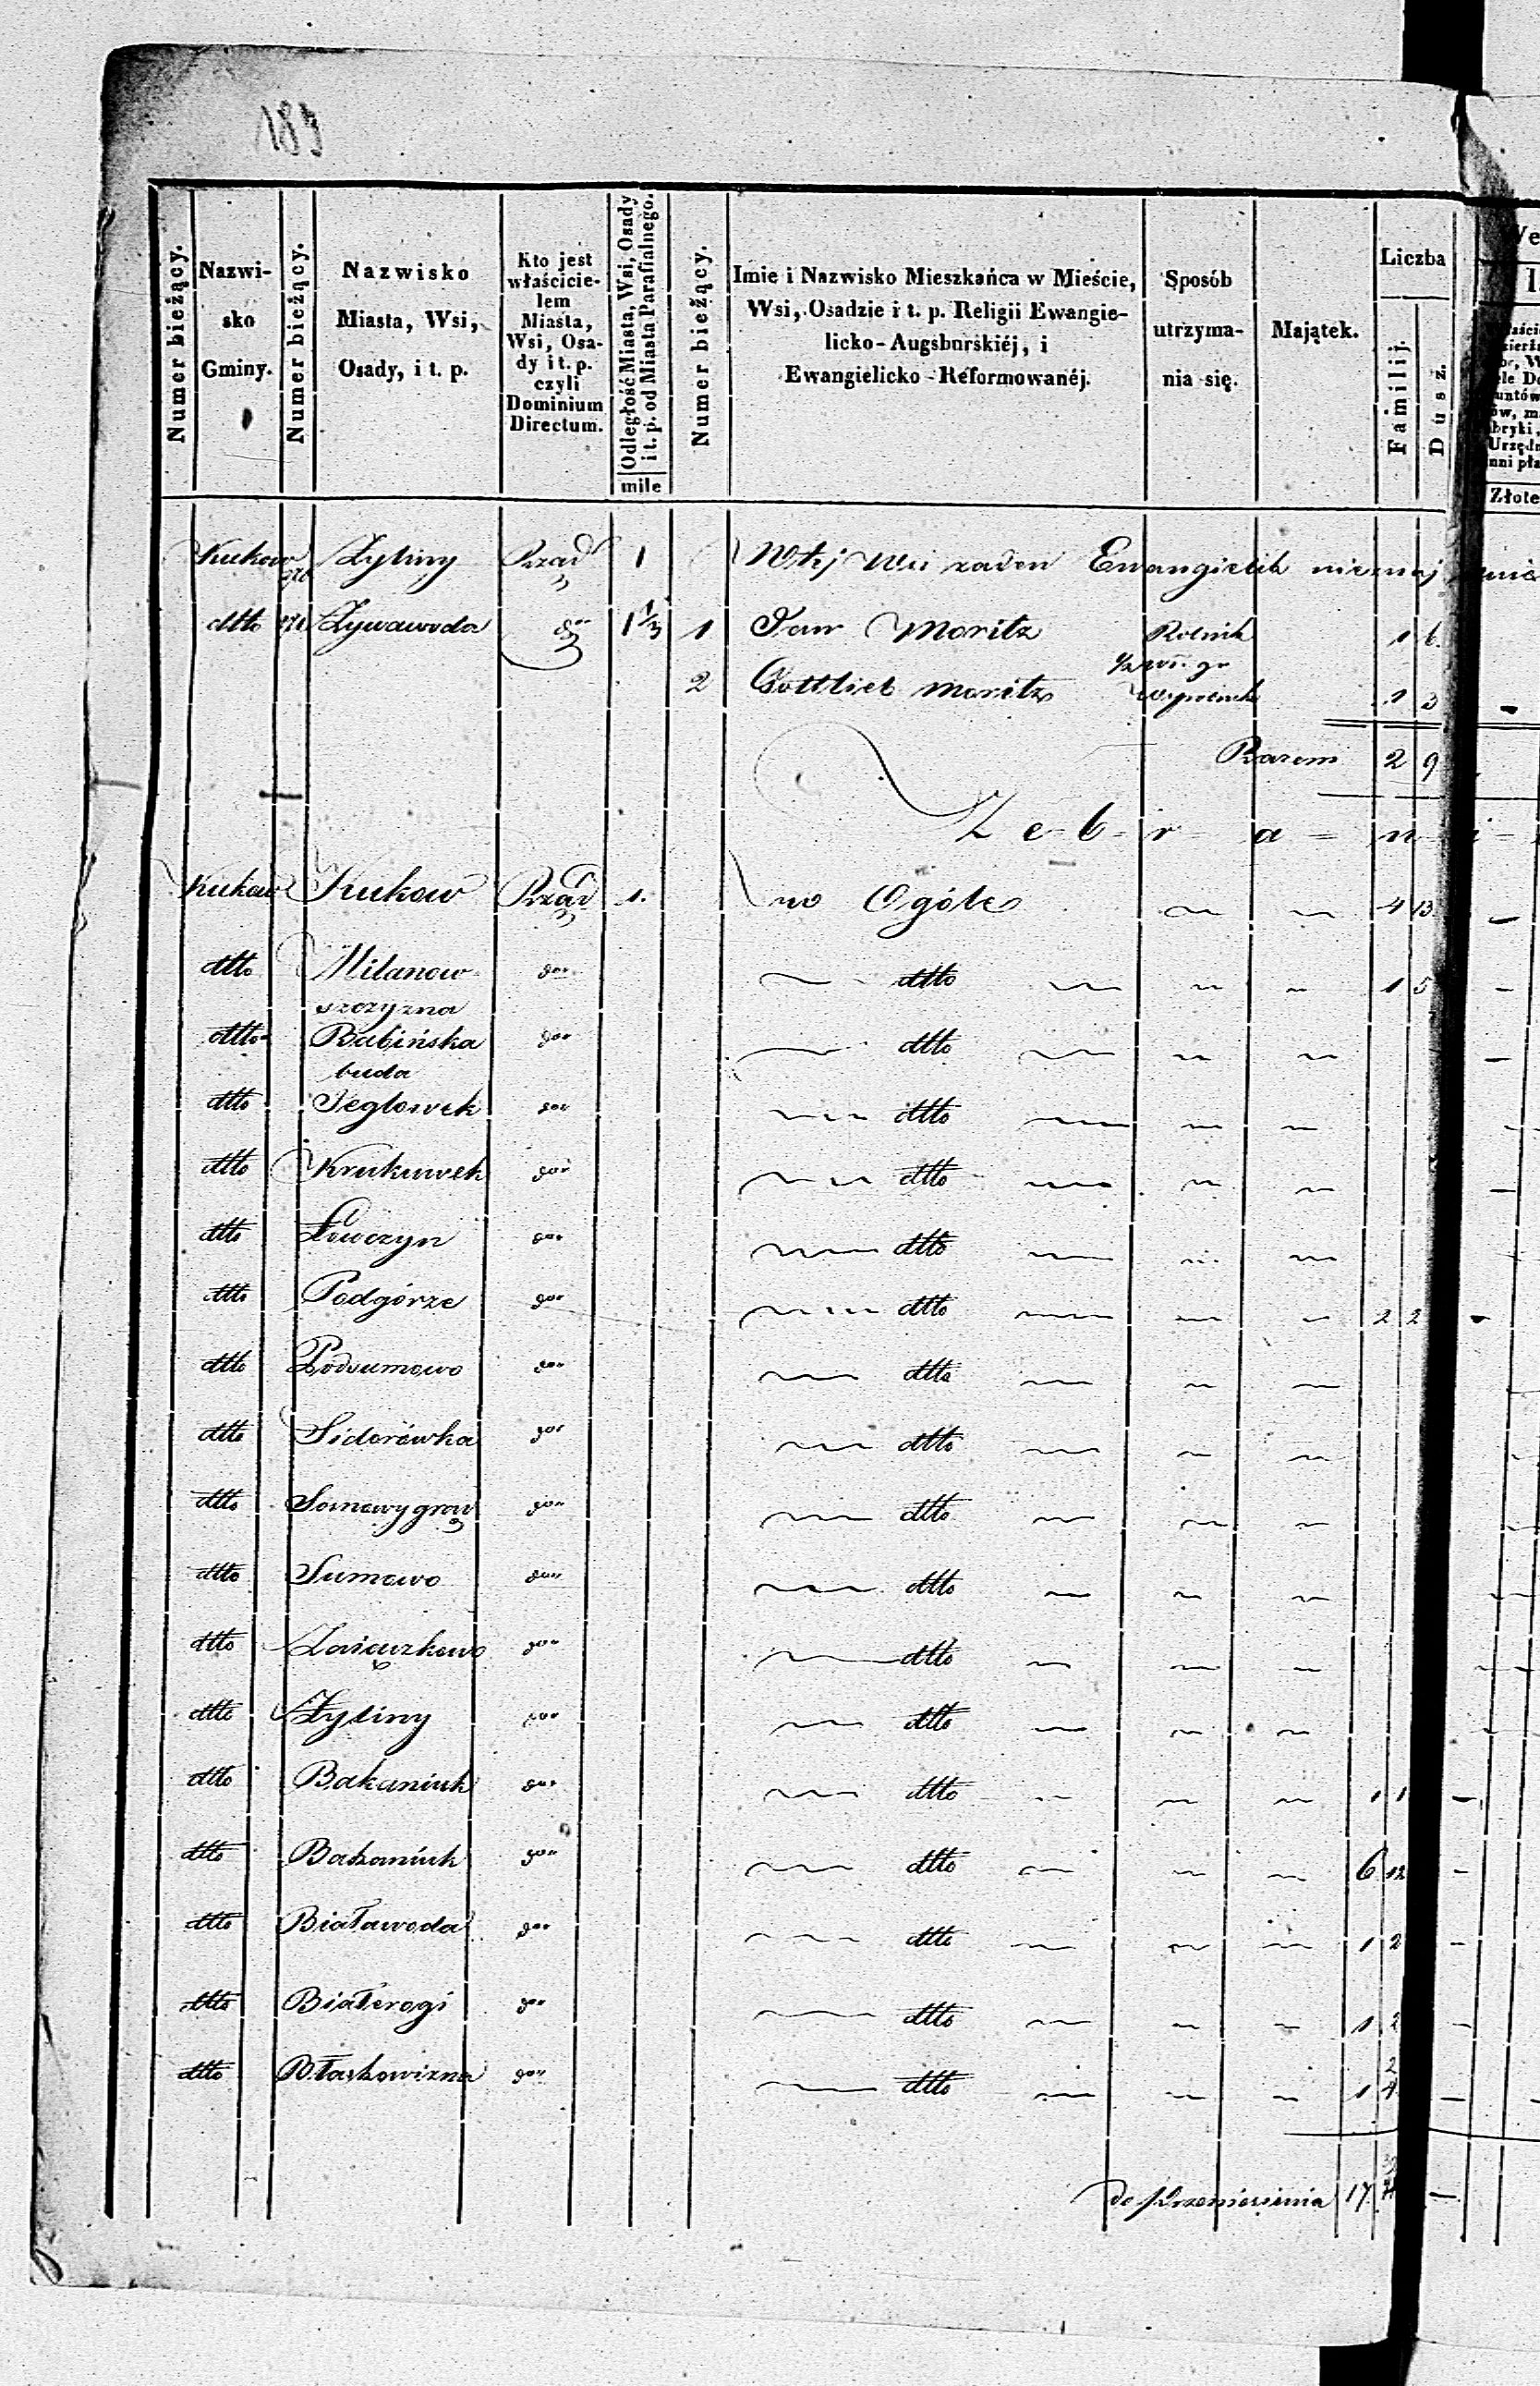 189
Numer bieżący.
Nazwi-
sko
Gminy.
Numer bieżący.
Nazwisko
Miasta, Wsi,
Osady, i t. p.
Kto jest
właścicie-
lem
Miasta,
Wsi, Osa-
dy i t. p.
czyli
Dominium
Directum.
Odległość Miasta, Wsi, Osady
i t. p. od Miasta Parafialnego.
mile
Numer bieżący.
Imie i Nazwisko Mieszkańca w Mieście,
Wsi, Osadzie i t. p. Religii Ewangie-
licko-Augsburskiéj, i
Ewangielicko-Reformowanéj.
Sposób
utrzyma-
nia się.
Majątek.
Liczba
Familij.
Dusz.
Złote
Kukow Żyliny Rząd 1 W tej Wsi żaden Ewangielik nieznaj
dtto Żywawoda do 1 1/3 1 Jan Moritz Rolnik 1 6
2 Gottlieb Moritz Wyrobnik 1 3
Razem 2 9
Z e b r a n i
Kukow Kukow Rząd 1. w Ogóle 4 13
dtto Milanow- do dtto 1 5
szczyzna
dtto Babińska do dtto
buda
dtto Jeglowek do dtto
dtto Krukuwek do dtto
dtto Lowczyn do dtto
dtto Podgórze do dtto 2 2
dtto Podsumowo do dtto
dtto Sidorówka do dtto
dtto do dtto
dtto Sumowo do dtto
dtto Zaiączkowo do dtto
dtto Żyliny do dtto
dtto Bakaniuk do dtto 1 1
dtto Bakaniuk do dtto 6 12
dtto Białawoda do dtto 1 2
dtto Białerogi do dtto 1 2
dtto Błaskowizna do dtto 1
do przeniesienia 17